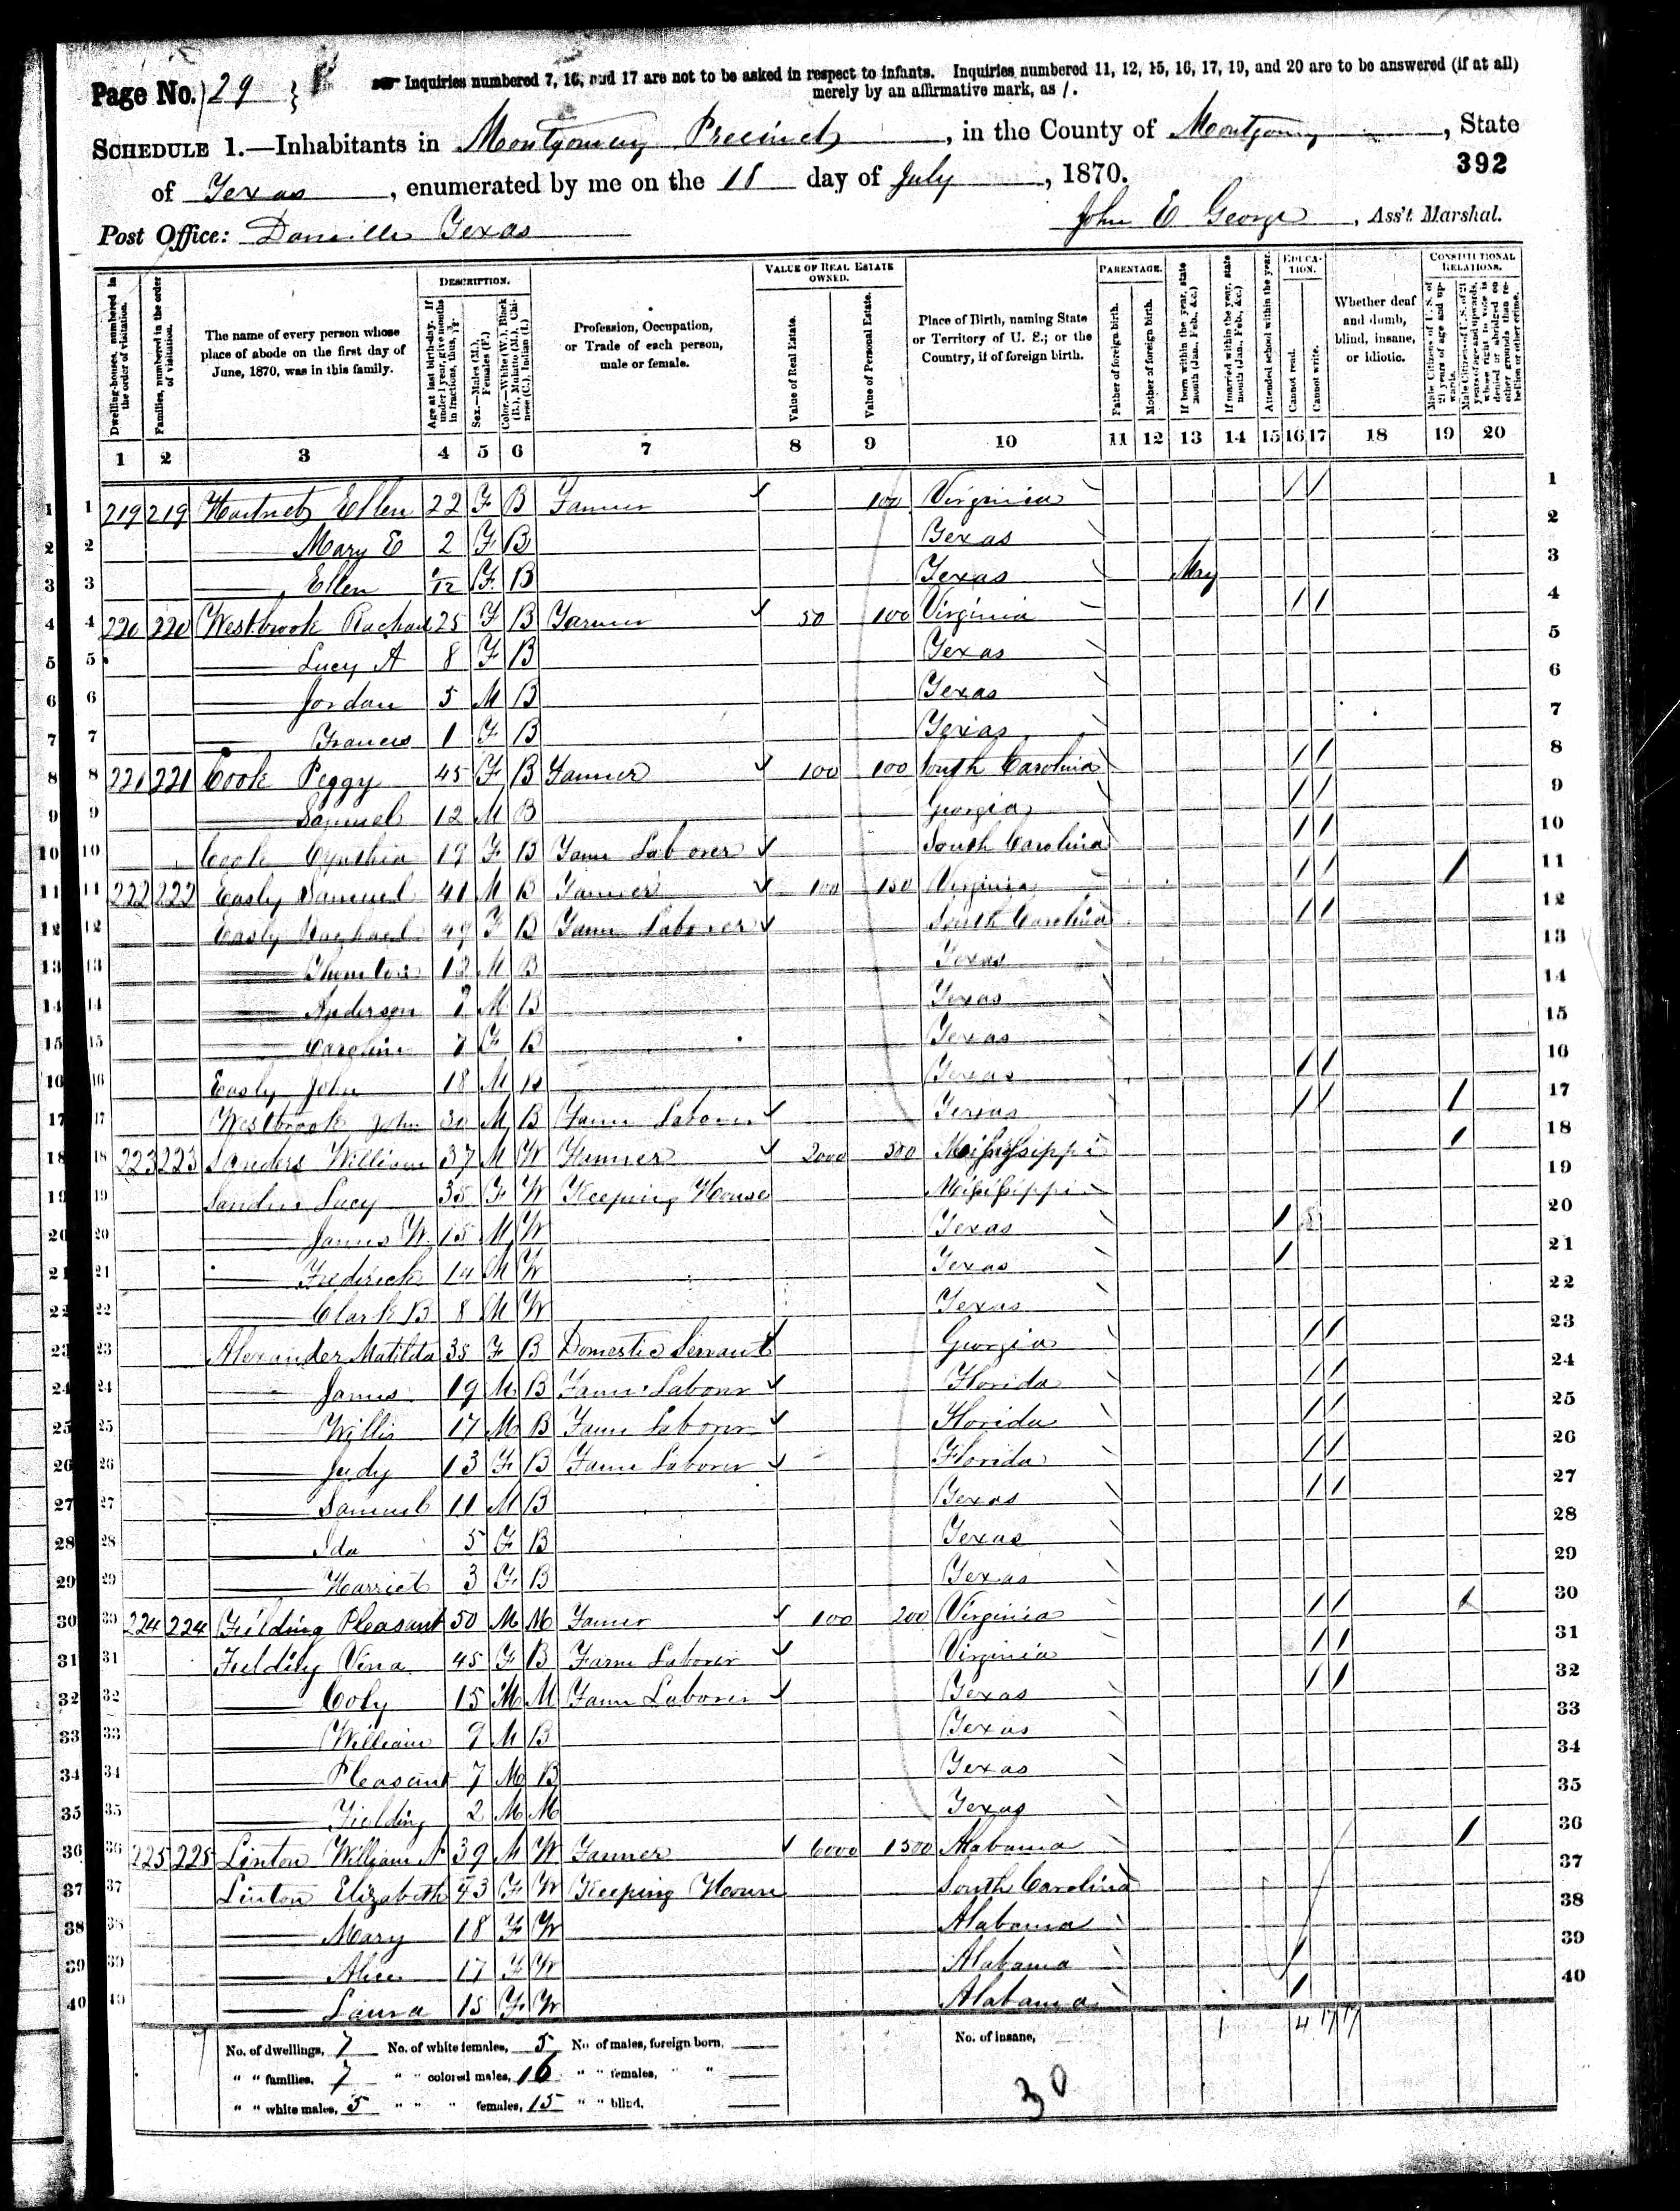 Page No. 29
Inquiries numbered 7, 16, and 17 are not to be asked in respect to infants. Inquiries numbered 11, 12, 15, 16, 17, 19, and 20 are to be answered (if at all)
merely by an affirmative mark, as /.
SCHEDULE 1.—Inhabitants in Montgomery Precinct, in the County of Montgomery, State
392
of Texas, enumerated by me on the 18 day of July, 1870.
Post Office: Danville Texas
John E George, Ass't Marshal.
Dwelling-houses, numbered in the order of visitation.
Families, numbered in the order of visitation.
The name of every person whose place of abode on the first day of June, 1870, was in this family.
DESCRIPTION.
Age at last birth-day. If under 1 year, give months in fractions, thus, 3/12.
Sex.—Males (M.), Females (F.)
Color.—White (W.), Black (B.), Mulatto (M.), Chinese (C.), Indian (I.)
Profession, Occupation, or Trade of each person, male or female.
VALUE OF REAL ESTATE OWNED.
Value of Real Estate.
Value of Personal Estate.
Place of Birth, naming State or Territory of U. S.; or the Country, if of foreign birth.
PARENTAGE.
Father of foreign birth.
Mother of foreign birth.
If born within the year, state month (Jan., Feb., &c.)
If married within the year, state month (Jan., Feb., &c.)
Attended school within the year.
EDUCATION.
Cannot read.
Cannot write.
Whether deaf and dumb, blind, insane, or idiotic.
CONSTITUTIONAL RELATIONS.
Male Citizens of U. S. of 21 years of age and upwards.
Male Citizens of U. S. of 21 years of age and upwards, whose right to vote is denied or abridged on other grounds than rebellion or other crime.
1 2 3 4 5 6 7 8 9 10 11 12 13 14 15 16 17 18 19 20
1 1 219 219 Ellen 22 F B Farmer 100 Virginia / / 1
2 2 Mary E 2 F B Texas 2
3 3 Ellen 1/12 F B Texas May 3
4 4 220 220 Westbrook Rachael 25 F B Farmer 50 100 Virginia / / 4
5 5 Lucy A 8 F B Texas 5
6 6 Jordan 5 M B Texas 6
7 7 Frances 1 F B Texas 7
8 8 221 221 Cook Peggy 45 F B Farmer 100 100 South Carolina / / 8
9 9 Samuel 12 M B Georgia / / 9
10 10 Cook Cynthia 19 F B Farm Laborer South Carolina / / 10
11 11 222 222 Easly Samuel 41 M B Farmer 100 150 Virginia / / / 11
12 12 Easly Rachael 49 F B Farm Laborer South Carolina / / 12
13 13 Thornton 12 M B Texas 13
14 14 Anderson M B Texas 14
15 15 Caroline 7 F B Texas 15
16 16 Easly John 18 M B Texas / / 16
17 17 Westbrook John 30 M B Farm Laborer Texas / / / 17
18 18 223 223 Sanders William 37 M W Farmer 2000 500 Mississippi / 18
19 19 Sanders Lucy 35 F W Keeping House Mississippi 19
20 20 James W 15 M W Texas / 20
21 21 Frederick 14 M W Texas / 21
22 22 Clark B 8 M W Texas 22
23 23 Alexander Matilda 35 F B Domestic Servant Georgia / / 23
24 24 James 19 M B Farm Laborer Florida / / 24
25 25 Willis 17 M B Farm Laborer Florida / / 25
26 26 Judy 13 F B Farm Laborer Florida / / 26
27 27 Samuel 11 M B Texas / / 27
28 28 Ida 5 F B Texas 28
29 29 Harriet 3 F B Texas 29
30 30 224 224 Fielding Pleasant 50 M M Farmer 100 200 Virginia / / / 30
31 31 Fielding Vina 45 F B Farm Laborer Virginia / / 31
32 32 Coly 15 M M Farm Laborer Texas / / 32
33 33 William 9 M B Texas 33
34 34 Pleasant 7 M B Texas 34
35 35 Fielding 2 M M Texas 35
36 36 225 225 Linton William A 39 M W Farmer 6000 1500 Alabama / 36
37 37 Linton Elizabeth 43 F W Keeping House South Carolina 37
38 38 Mary 18 F W Alabama 38
39 39 Alice 17 F W Alabama / 39
40 40 Laura 15 F W Alabama / 40
No. of dwellings, 7 No. of white females, 5 No. of males, foreign born, No. of insane, 1 4 17 17
" " families, 7 " " colored males, 16 " " females, " "
" " white males, 5 " " " females, 15 " " blind,
30